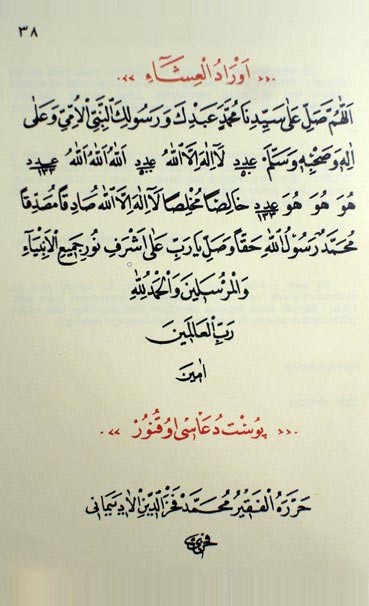 ٣٨
اَوْرَادُ الْعِشَاءِ
اَللّٰهُمَّ صَلِّ عَلٰى سَيِّدِنَا مُحَمَّدٍ عَبْدِكَ وَرَسُولِكَ النَّبِيِّ الْاُمِّيِّ وَعَلٰى
اٰلِهِ وَصَحْبِهِ وَسَلَّمَ عدد لَا اِلٰهَ اِلَّا اللّٰهُ عدد اَللّٰهُ اَللّٰهُ اَللّٰهُ عدد
هُوَ هُوَ هُوَ عدد خَالِصًا مُخْلِصًا لَا اِلٰهَ اِلَّا اللّٰهُ صَادِقًا مُصَدِّقًا
مُحَمَّدٌ رَسُولُ اللّٰهِ حَقًّا وَصَلِّ يَا رَبِّ عَلٰى اَشْرَفِ نُورِ جَمِيعِ الْاَنْبِيَاءِ
وَالْمُرْسَلِينَ وَالْحَمْدُ لِلّٰهِ
رَبِّ الْعَالَمِينَ
اٰمِينَ
پوُسْت دُعَاسِى اوُقُنُورْ
حَرَّرَهُ الْفَقِيرُ مُحَمَّدْ فَخْرُ الدِّينِ الْاَرْدِيمَانِى